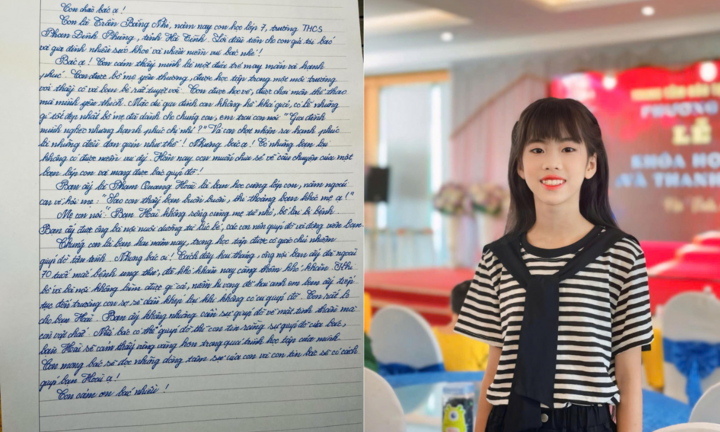 Con chào bác ạ!
Con là Trần Băng Nhi, năm nay con học lớp 7, trường THCS
Phan Đình Phùng, tỉnh Hà Tĩnh. Lời đầu tiên cho con gửi tới bác
và gia đình nhiều sức khoẻ và nhiều niềm vui bác nhé!
Bác ạ! Con cảm thấy mình là một đứa trẻ may mắn và hạnh
phúc. Con được bố mẹ yêu thương, được học tập trong một môi trường
có thầy cô và bạn bè rất tuyệt vời. Con được học vẽ, được chơi môn thể thao
mà mình yêu thích. Mặc dù gia đình con không hề khá giả, có lẽ những
gì tốt đẹp nhất bố mẹ đã dành cho chúng con, em trai con nói: "Gia đình
mình nghèo nhưng hạnh phúc chị nhỉ?" Và con chợt nhận ra hạnh phúc
là những điều đơn giản như thế! Nhưng bác ạ! Có những bạn lại
không có được niềm vui ấy. Hôm nay con muốn chia sẻ về câu chuyện của một
bạn lớp con và mong được bác giúp đỡ!
Bạn ấy là Phan Quang Hoài là bạn học cùng lớp con, năm ngoái
con có hỏi mẹ: "Sao con thấy bạn buồn buồn, thi thoảng bạn khóc mẹ ạ!"
Mẹ con nói: "Bạn Hoài không sống cùng mẹ từ nhỏ, bố lại bị bệnh
Bạn ấy được ông bà nội nuôi dưỡng từ lúc bé, các con nên giúp đỡ và động viên bạn.
Chúng con là bạn lâu năm nay, trong học tập được cô giáo chủ nhiệm
giúp đỡ tận tình. Nhưng bác ạ! Cách đây hai tháng, ông nội bạn ấy đã ngoài
70 tuổi mắc bệnh ung thư, đã khó khăn nay càng thêm khó khăn. Khi
bố và bà nội không làm được gì cả, niềm hi vọng để hai anh em bạn ấy tiếp
tục đến trường con sợ sẽ dần khép lại khi không có ai giúp đỡ. Con rất lo
cho bạn Hoài. Bạn ấy không những cần sự giúp đỡ về mặt tinh thần mà
cả vật chất. Nếu bác có thể giúp đỡ thì con tin rằng sự giúp đỡ của bác,
bạn Hoài sẽ cảm thấy vững vàng hơn trong quá trình học tập của mình.
Con mong bác sẽ đọc những dòng tâm sự của con và con tin bác sẽ có cách
giúp bạn Hoài ạ!
Con cảm ơn bác nhiều!
PHƯỜNG
LỄ
KHÓA HỌ
VÀ THANH